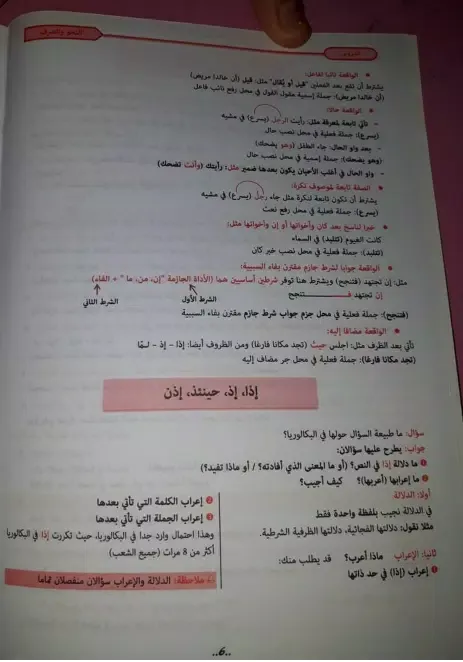 النحو والصرف
الدروس
الواقعة نائبا لفاعل:
يشترط أن تقع بعد الفعلين "قيل أو يُقال" مثل: قيل (أن خالدا مريض)
(أن خالدا مريض): جملة إسمية مقول القول في محل رفع نائب فاعل
الواقعة حالا:
- تأتي تابعة لمعرفة مثل: رأيت الرجل (يسرع) في مشيه
(يسرع): جملة فعلية في محل نصب حال
- بعد واو الحال: جاء الطفل (وهو يضحك)
(وهو يضحك): جملة إسمية في محل نصب حال
- واو الحال في أغلب الأحيان يكون بعدها ضمير مثل: رأيتك (وأنت تضحك)
الصفة تابعة لموصوف نكرة:
يشترط أن تكون تابعة لنكرة مثل جاء رجل (يسرع) في مشيه
(يسرع): جملة فعلية في محل رفع نعت
خبرا لناسخ بعد كان وأخواتها أو إن وأخواتها مثل:
كانت الغيوم (تتلبد) في السماء
(تتلبد): جملة فعلية في محل نصب خبر كان
الواقعة جوابا لشرط جازم مقترن بفاء السببية:
مثل: إن تجتهد (فتنجح) ويشترط هنا توفر شرطين أساسيين هما (الأداة الجازمة "إن، من، ما" + الفاء)
إن تجتهد فـــــتنجح
الشرط الأول
الشرط الثاني
(فتنجح): جملة فعلية في محل جزم جواب شرط جازم مقترن بفاء السببية
الواقعة مضافا إليه:
تأتي بعد الظرف مثل: اجلس حيث (تجد مكانا فارغا) ومن الظروف أيضا: إذا - إذ - لـمّا
(تجد مكانا فارغا): جملة فعلية في محل جر مضاف إليه
إذا، إذ، حينئذ، إذن
سؤال: ما طبيعة السؤال حولها في البكالوريا؟
جواب: يطرح عليها سؤالان:
ما دلالة إذا في النص؟ (أو ما المعنى الذي أفادته؟ / أو ماذا تفيد؟)
ما إعرابها (أعربها)؟ كيف أجيب؟
أولا: الدلالة
في الدلالة نجيب بلفظة واحدة فقط
مثلا نقول: دلالتها الفجائية، دلالتها الظرفية الشرطية.
ثانيا: الإعراب ماذا أعرب؟ قد يطلب منك:
إعراب (إذا) في حد ذاتها
إعراب الكلمة التي تأتي بعدها
إعراب الجملة التي تأتي بعدها
وهذا احتمال وارد جدا في البكالوريا، حيث تكررت إذا في البكالوريا
أكثر من 8 مرات (جميع الشعب)
ملاحظة: الدلالة والإعراب سؤالان منفصلان تماما
..6..